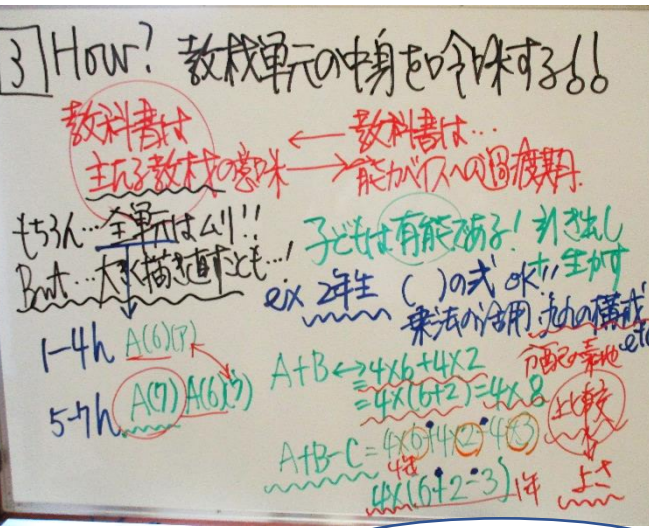 3 How? 教材単元の中身を吟味する!!
教科書は
主たる教材の意味
← 教科書は…
→ 能力ベイスへの過渡期.
もちろん…全単元はムリ!!
But…大きく描き直すことも…!
子どもは有能である! 引き出し
生かす
ex 2年生 ( )の式 OK!!
乗法の活用. 九九の構成 etc
分配の素地
1-4h A(6)(ア)
5-7h A(7) A(6)(ア)
A+B ↔ 4×6+4×2
=4×(6+2)=4×8
比較
よさ
A+B-C=4×6+4×2-4×3
4年
4×(6+2-3) 1年